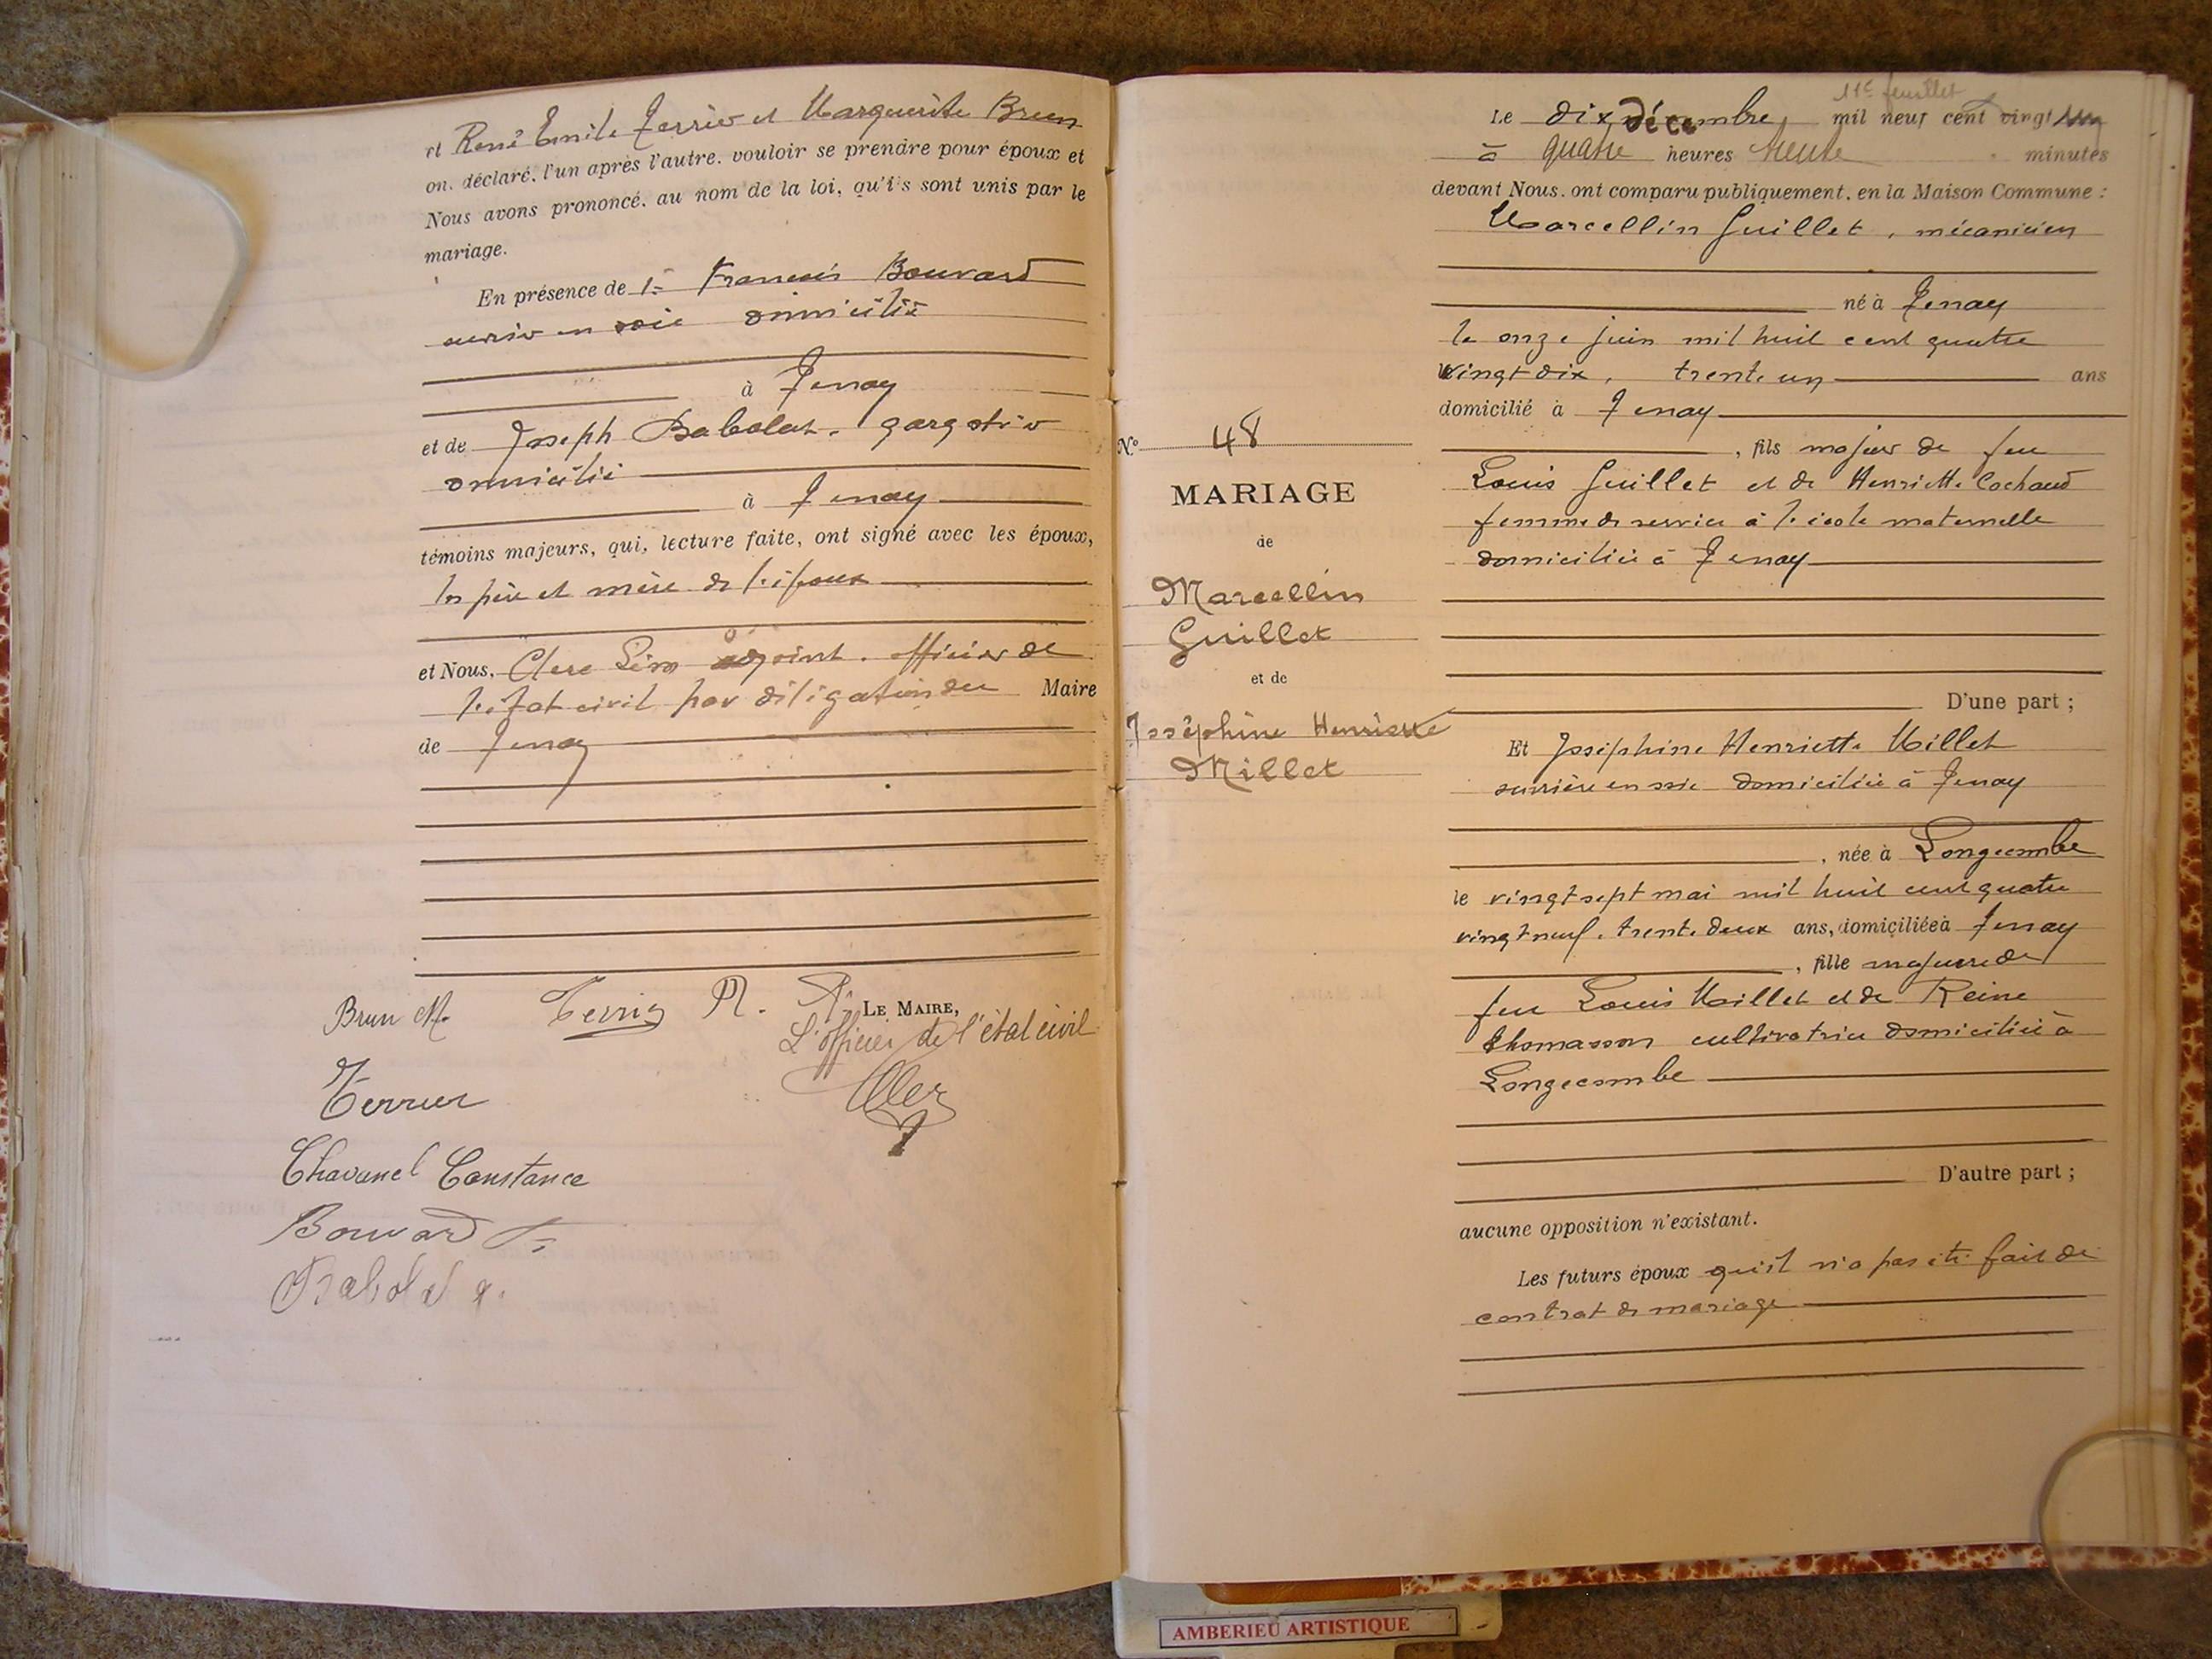 et René Emile Terrier et Marguerite Brun
on. déclaré. l'un après l'autre. vouloir se prendre pour époux et
Nous avons prononcé. au nom de la loi, qu'i's sont unis par le
mariage.
En présence de 1= François Bouvard
ouvrier en soie domicilié
à Tenay
et de Joseph Babolat. gargotier
domicilié
à Tenay
témoins majeurs, qui, lecture faite, ont signé avec les époux,
les père et mère de l'époux
et Nous, Clerc Léon adjoint. officier de
l'état civil par délégation du Maire
de Tenay
Brun M. Terrier R. Pr LE MAIRE,
L'officier de l'état civil
Clerc
Terrier
Chavanel Constance
Bouvard F.
Babolat J.
11e feuillet
Le dix décembre mil neuf cent vingt un
à quatre heures trente minutes
devant Nous. ont comparu publiquement. en la Maison Commune :
Marcellin Guillet, mécanicien
né à Tenay
le onze juin mil huit cent quatre
vingt dix, trente un ans
domicilié à Tenay
N° 48
, fils majeur de feu
Louis Guillet et de Henriette Cochaud
MARIAGE
femme de service à l'école maternelle
de
domiciliée à Tenay
Marcellin
Guillet
et de
D'une part ;
Joséphine Henriette
Millet
Et Joséphine Henriette Millet
ouvrière en soie domiciliée à Tenay
, née à Longecombe
le vingt sept mai mil huit cent quatre
vingt neuf. trente deux ans, domiciliée à Tenay
, fille majeure de
feu Louis Millet et de Reine
Thomasson cultivatrice domiciliée à
Longecombe
D'autre part ;
aucune opposition n'existant.
Les futurs époux qu'il n'a pas été fait de
contrat de mariage
AMBERIEU ARTISTIQUE